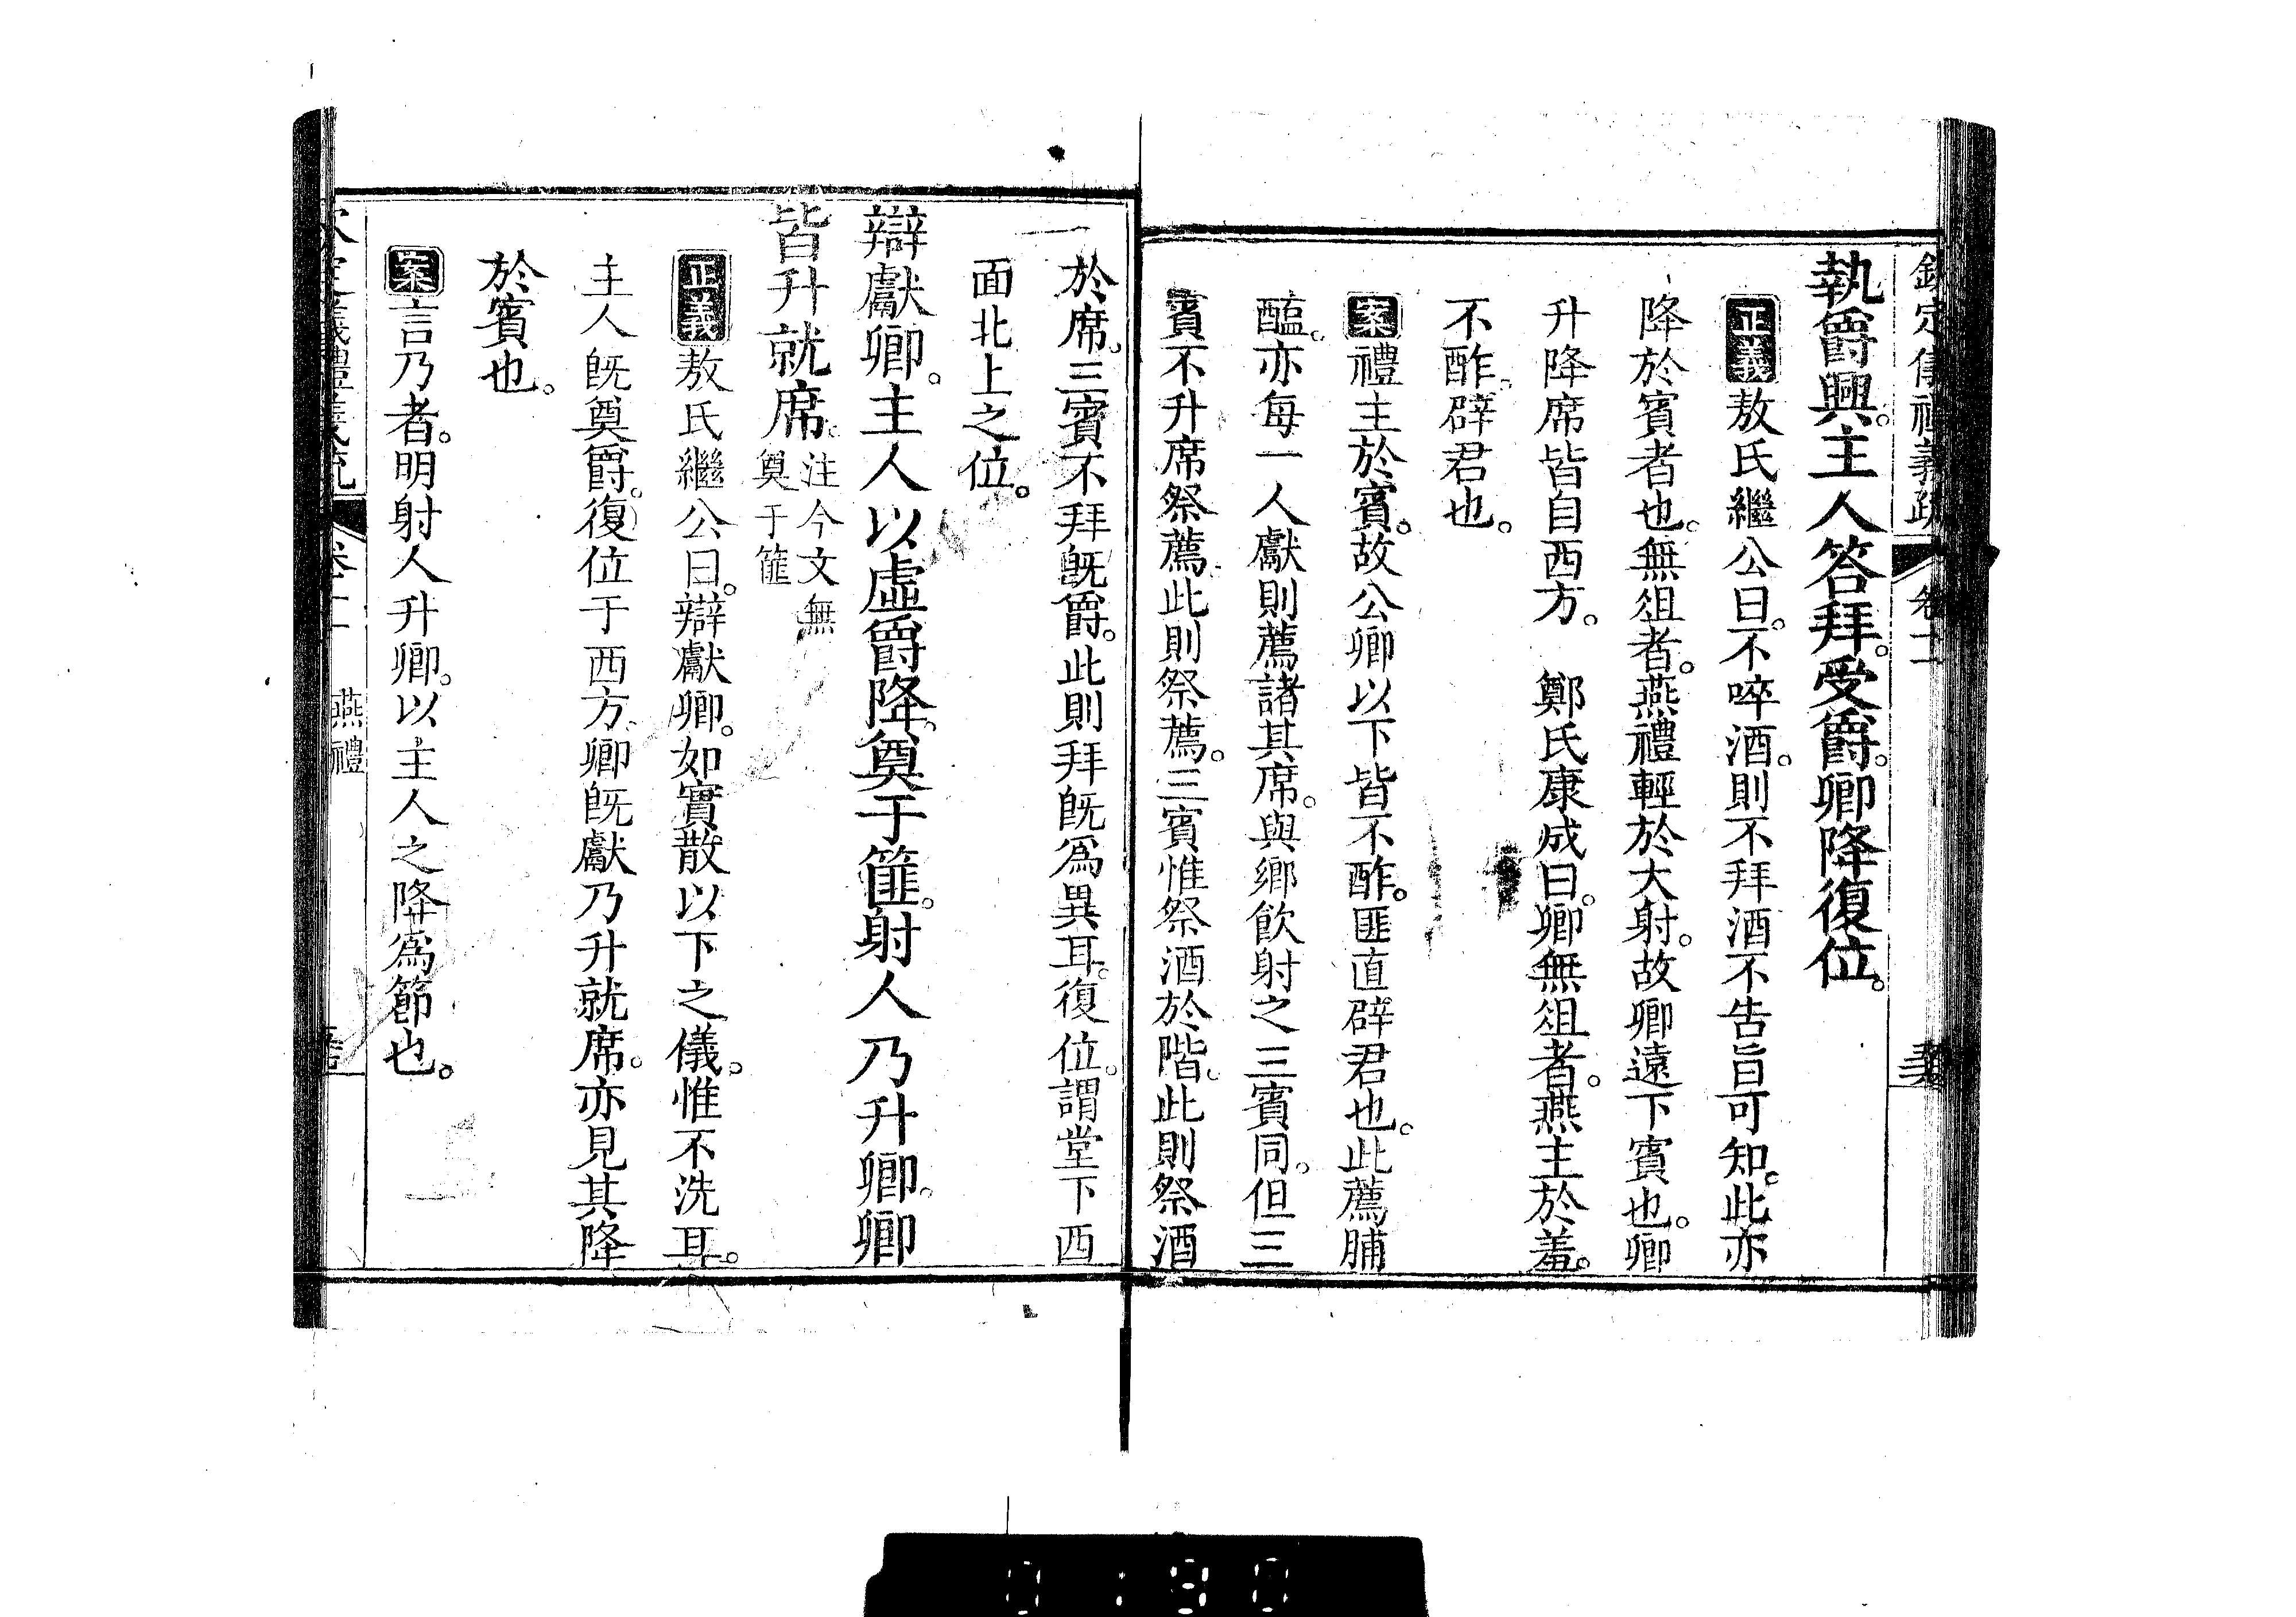 執爵興。主人答拜。受爵。卿降復位。
正義敖氏繼公曰。不啐酒。則不拜酒不告旨可知。此亦
降於賓者也。無俎者。燕禮輕於大射。故卿遠下賓也。卿
升降席皆自西方。　鄭氏康成曰。卿無俎者。燕主於羞。
不酢。辟君也。
案禮主於賓。故公卿以下皆不酢。匪直辟君也。此薦脯
醢。亦每一人獻則薦諸其席。與鄉飲射之三賓同。但三
賓不升席祭薦。此則祭薦。三賓惟祭酒於階。此則祭酒
於席。三賓不拜旣爵。此則拜旣爲異耳。復位。謂堂下西
面北上之位。
辯獻卿。主人以虛爵降。奠于篚。射人乃升卿。卿
皆升就席。注今文無
奠于篚
正義敖氏繼公曰。辯獻卿。如實散以下之儀。惟不洗耳。
主人旣奠爵。復位于西方。卿旣獻乃升就席。亦見其降
於賓也。
案言乃者。明射人升卿。以主人之降爲節也。
燕禮